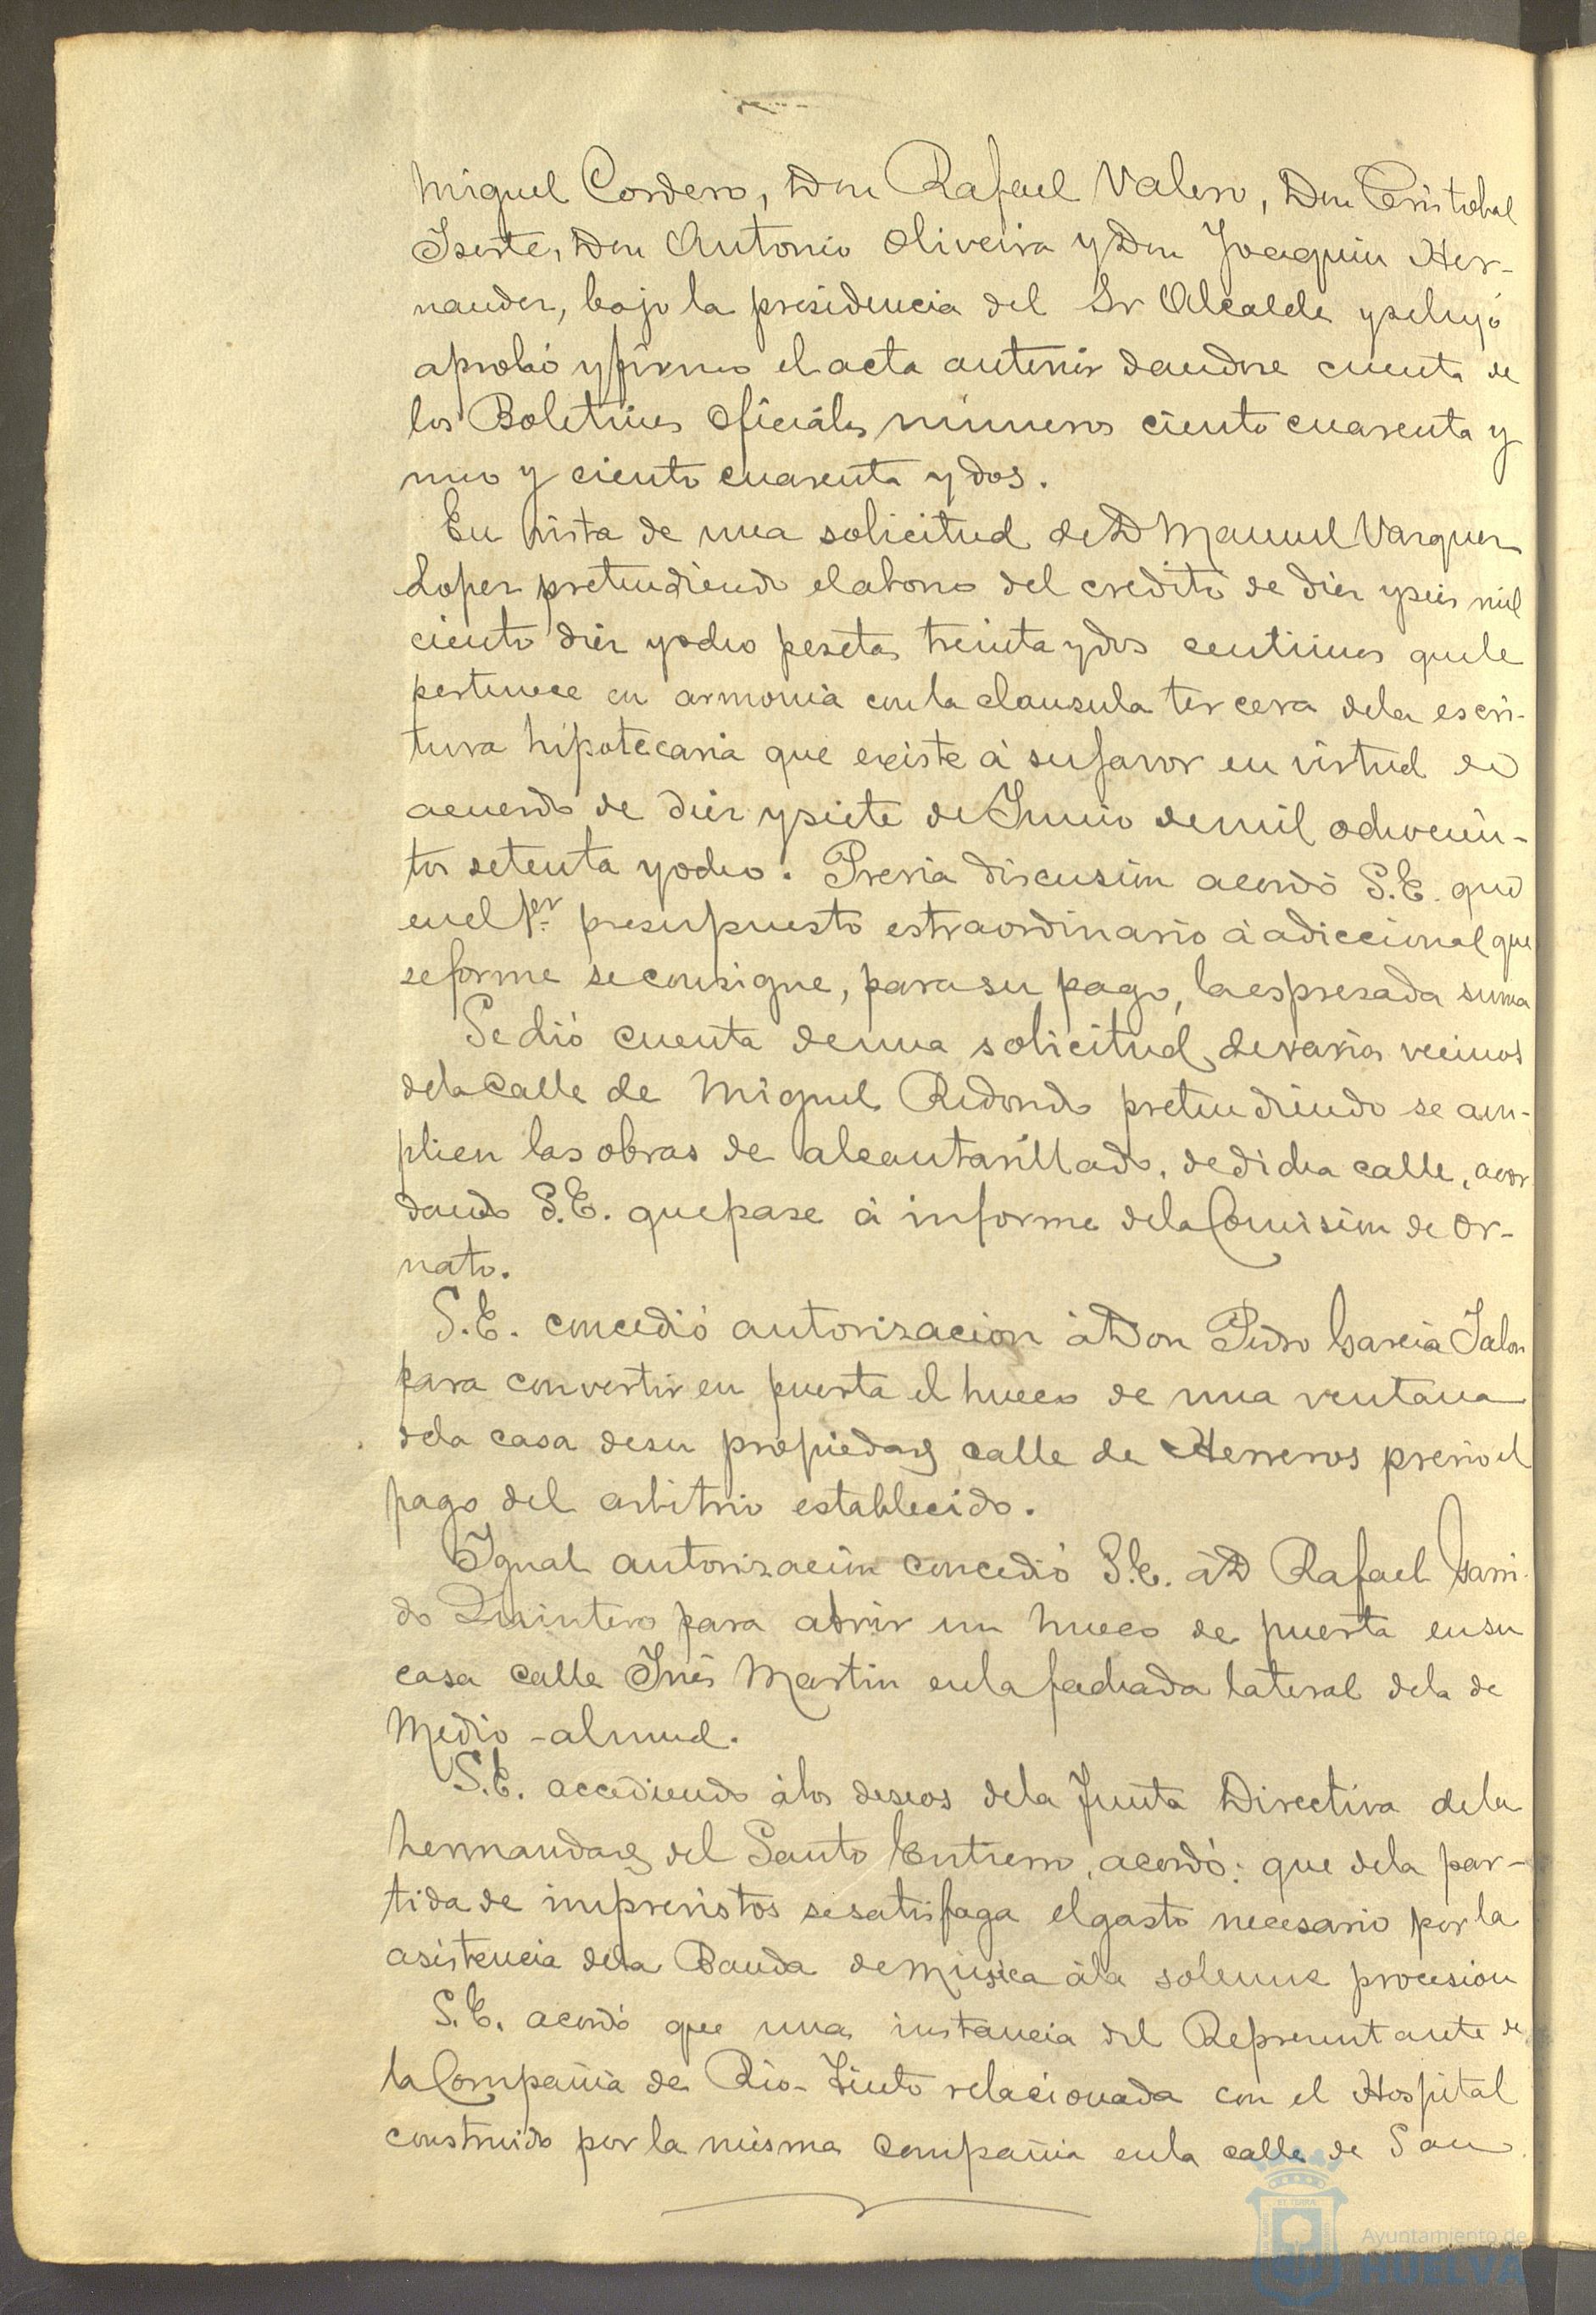 Miguel Cordero, Don Rafael Valero, Don Cristobal
Iserte, Don Antonio Oliveira y Don Joaquin Her-
nandez, bajo la presidencia del Sr Alcalde y se leyó
aprobó y firmo el acta anterior dandose cuenta de
los Boletines Oficiales numeros ciento cuarenta y
uno y ciento cuarenta y dos.
En vista de una solicitud de D Manuel Vazquez
Lopez pretendiendo el abono del credito de diez y seis mil
ciento diez y ocho pesetas treinta y dos centimos que le
pertenece en armonia con la clausula tercera de la escri-
tura hipotecaria que existe á su favor en virtud de
acuerdo de diez y siete de Junio de mil ochocien-
tos setenta y ocho. Previa discusion acordó S.E. que
en el pr presupuesto estraordinario á adiccional que
se forme se consigne, para su pago, la espresada suma
Se dió cuenta de una solicitud de varios vecinos
de la calle de Miguel Redondo pretendiendo se am-
plien las obras de alcantarillado, de dicha calle, acor
dando S.E. que pase á informe de la Comision de Or-
nato.
S.E. concedió autorizacion á Don Pedro Garcia Jalon
para convertir en puerta el hueco de una ventana
de la casa de su propiedad calle de Herreros previo el
pago del arbitrio establecido.
Igual autorizacion concedió S.E. á D Rafael Garri-
do Quintero para abrir un hueco de puerta en su
casa calle Inés Martin en la fachada lateral de la de
Medio-almud.
S.E. accediendo á los deseos de la Junta Directiva de la
hermandad del Santo Entierro, acordó: que de la par-
tida de imprevistos se satisfaga el gasto necesario por la
asistencia de la Banda de música á la solemne procesion
S.E. acordó que una instancia del Representante de
la Compañia de Rio-Tinto relacionada con el Hospital
construido por la misma Compañia en la calle de San
Ayuntamiento de
HUELVA